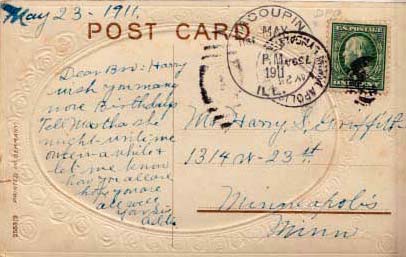 May 23 - 1911.
POST CARD
MACOUPIN
MAY
P.M.
1911
ILL.
U.S. POSTAGE
ONE CENT
Dear Bro: Harry
wish you many
more Birthdays
Tell Martha she
might write me
once in a while &
let me know
how you all are
hope you are
all well
Your Sis
Mr. Harry S. Griffith
1314 N - 23rd st
Minneapolis
Minn
PRINTED IN GERMANY